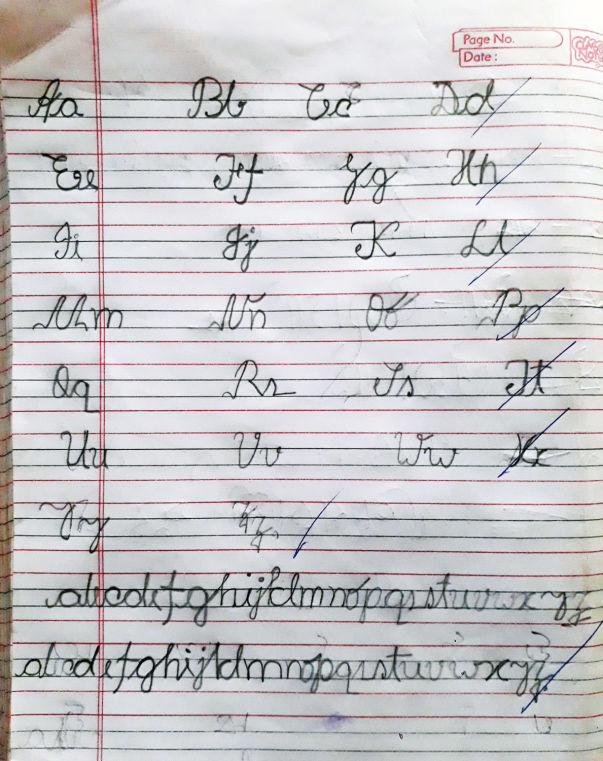 Page No.
Date :
Aa Bb Cc Dd
Ee Ff Gg Hh
Ii Jj K Lt
Mm Nn Oo Pp
Qq Rr Ss Tt
Uu Vv Ww Xx
Yy Zz
abcdefghijklmnopqrstuvwxyz
abcdefghijklmnopqrstuvwxyz